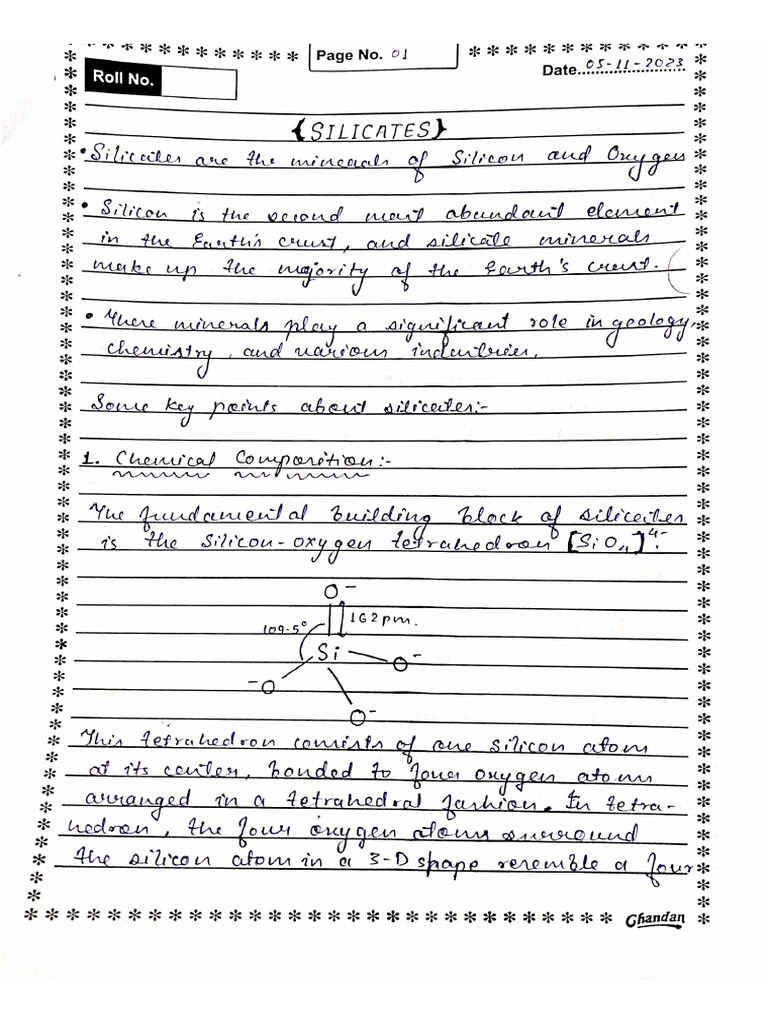 Page No. 01
Roll No.
Date 05-11-2023
{SILICATES}
• Silicates are the minerals of Silicon and Oxygen
• Silicon is the second most abundant element
in the Earth's crust, and silicate minerals
make up the majority of the Earth's crust.
• These minerals play a significant role in geology,
chemistry, and various industries.
Some key points about silicates:-
1. Chemical Composition:-
The fundamental building block of silicates
is the silicon-oxygen tetrahedron [SiO₄]⁴⁻.
O⁻
109.5° 162pm.
Si
O⁻
⁻O
O⁻
This tetrahedron consists of one silicon atom
at its center, bonded to four oxygen atoms
arranged in a tetrahedral fashion. In tetra-
hedron, the four oxygen atoms surround
the silicon atom in a 3-D shape resemble a four
Chandan